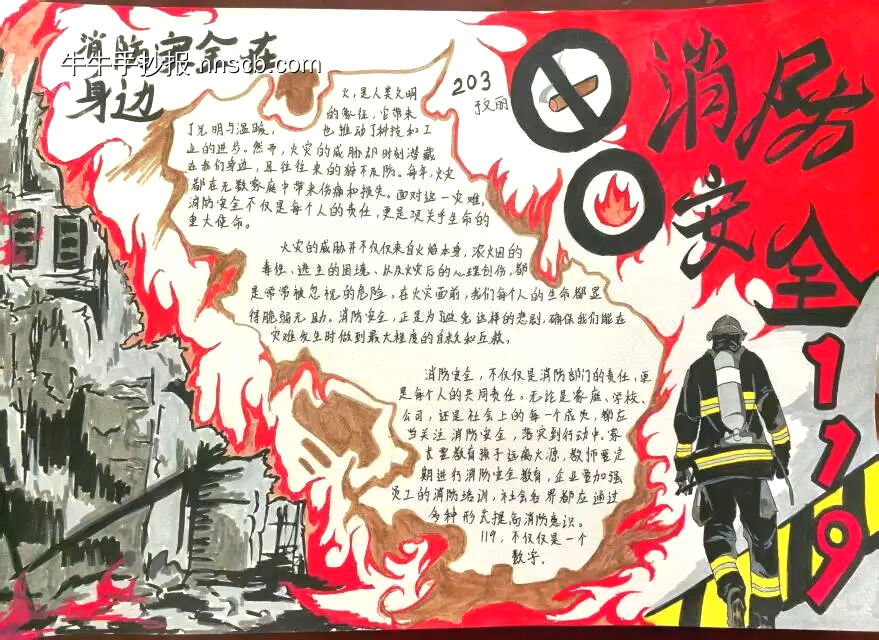 消防安全在
身边
牛牛手抄报 nnscb.com
203
消防
安全
119
火,是人类文明
的象征,它带来
了光明与温暖,
也推动了科技和工
业的进步。然而,火灾的威胁却时刻潜藏
在我们身边,且往往来的猝不及防。每年,火灾
都在无数家庭中带来伤痛和损失。面对这一灾难,
消防安全不仅是每个人的责任,更是项关乎生命的
重大使命。
火灾的威胁并不仅仅来自火焰本身,浓烟因的
毒性、逃生的困境、以及火灾后的心理创伤,都
是常常被忽视的危险。在火灾面前,我们每个人的生命都显
得脆弱无助。消防安全,正是为了避免这样的悲剧,确保我们能在
灾难发生时做到最大程度的自救和互救。
消防安全,不仅仅是消防部门的责任,更
是每个人的共同责任。无论是家庭、学校、
公司,还是社会上的每一个成员,都应
当关注消防安全,落实到行动中。家
长要教育孩子远离火源,教师要定
期进行消防安全教育,企业要加强
员工的消防培训,社会各界都应通过
多种形式提高消防意识。
119,不仅仅是一个
数字。